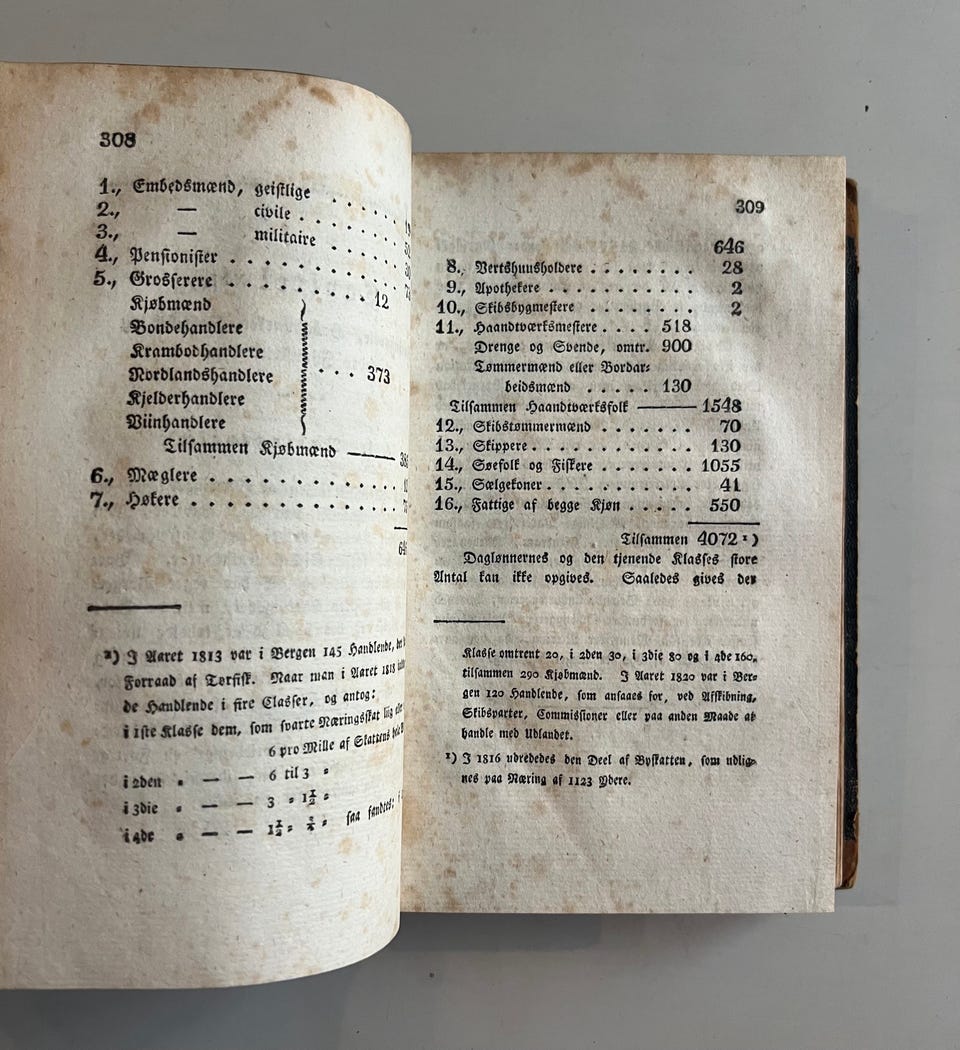 308
1., Embedsmænd, geistlige . . . . .
2., — civile . . . . . .
3., — militaire . . . . .
4., Pensionister . . . . . . . . . . .
5., Grosserere . . . . . . . . . 12
Kjøbmænd
Bondehandlere
Krambodhandlere
Nordlandshandlere . . . 373
Kjelderhandlere
Viinhandlere
Tilsammen Kjøbmænd ——
6., Mæglere . . . . . . . . . . . .
7., Høkere . . . . . . . . . . . .
²) I Aaret 1813 var i Bergen 145 Handlende,
Forraad af Tørfisk. Naar man i Aaret 1813
de Handlende i fire Classer, og antog:
i 1ste Klasse dem, som svarte Næringsskat liig
6 pro Mille af Skattens
i 2den „ — — 6 til 3 „
i 3die „ — — 3 „ 1½ „
i 4de „ — — 1½ „ „ saa fandtes:
309
646
8., Vertshuusholdere . . . . . . . . 28
9., Apothekere . . . . . . . . . . 2
10., Skibsbygmestere . . . . . . . . 2
11., Haandtværksmestere . . . . 518
Drenge og Svende, omtr. 900
Tømmermænd eller Bordar=
beidsmænd . . . . . 130
Tilsammen Haandtværksfolk —— 1548
12., Skibstømmermænd . . . . . . . 70
13., Skippere . . . . . . . . . . . 130
14., Søefolk og Fiskere . . . . . . . 1055
15., Sælgekoner . . . . . . . . . . . 41
16., Fattige af begge Kjøn . . . . . 550
Tilsammen 4072 ¹)
Daglønnernes og den tjenende Klasses store
Antal kan ikke opgives. Saaledes gives der
Klasse omtrent 20, i 2den 30, i 3die 80 og i 4de 160,
tilsammen 290 Kjøbmænd. I Aaret 1820 var i Ber=
gen 120 Handlende, som ansaaes for, ved Afskibning,
Skibsparter, Commissioner eller paa anden Maade at
handle med Udlandet.
¹) I 1816 udrededes den Deel af Byskatten, som udlig=
nes paa Næring af 1123 Ydere.